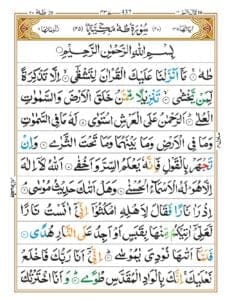 سُوْرَةُ طٰهٰ مَكِّيَّةٌ
بِسْمِ اللّٰهِ الرَّحْمٰنِ الرَّحِيْمِ
طٰهٰ مَآ اَنْزَلْنَا عَلَيْكَ الْقُرْاٰنَ لِتَشْقٰٓى اِلَّا تَذْكِرَةً
لِّمَنْ يَّخْشٰى تَنْزِيْلًا مِّمَّنْ خَلَقَ الْاَرْضَ وَالسَّمٰوٰتِ
الْعُلٰى اَلرَّحْمٰنُ عَلَى الْعَرْشِ اسْتَوٰى لَهٗ مَا فِى السَّمٰوٰتِ
وَمَا فِى الْاَرْضِ وَمَا بَيْنَهُمَا وَمَا تَحْتَ الثَّرٰى وَاِنْ
تَجْهَرْ بِالْقَوْلِ فَاِنَّهٗ يَعْلَمُ السِّرَّ وَاَخْفٰى اَللّٰهُ لَآ اِلٰهَ
اِلَّا هُوَ لَهُ الْاَسْمَآءُ الْحُسْنٰى وَهَلْ اَتٰىكَ حَدِيْثُ مُوْسٰى
اِذْ رَاٰ نَارًا فَقَالَ لِاَهْلِهِ امْكُثُوْٓا اِنِّىْٓ اٰنَسْتُ نَارًا
لَّعَلِّىْٓ اٰتِيْكُمْ مِّنْهَا بِقَبَسٍ اَوْ اَجِدُ عَلَى النَّارِ هُدًى
فَلَمَّآ اَتٰىهَا نُوْدِىَ يٰمُوْسٰى اِنِّىْٓ اَنَا رَبُّكَ فَاخْلَعْ
نَعْلَيْكَ اِنَّكَ بِالْوَادِ الْمُقَدَّسِ طُوًى وَاَنَا اخْتَرْتُكَ